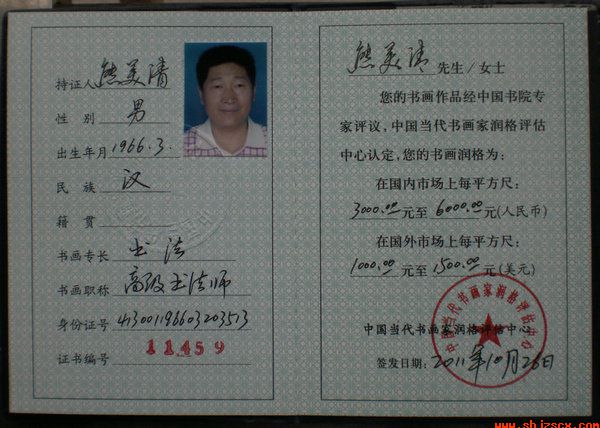 持证人 熊美清
性别 男
出生年月 1966.3.
民族 汉
籍贯
书画专长 书法
书画职称 高级书法师
身份证号
证书编号 11459
熊美清 先生/女士
您的书画作品经中国书院专
家评议,中国当代书画家润格评估
中心认定,您的书画润格为:
在国内市场上每平方尺:
3000.00元至6000.00元(人民币)
在国外市场上每平方尺:
1000.00元至1500.00元(美元)
中国当代书画家润格评估中心
签发日期:2011年10月26日
中国当代书画家润格评估中心
www.shjzscx.com